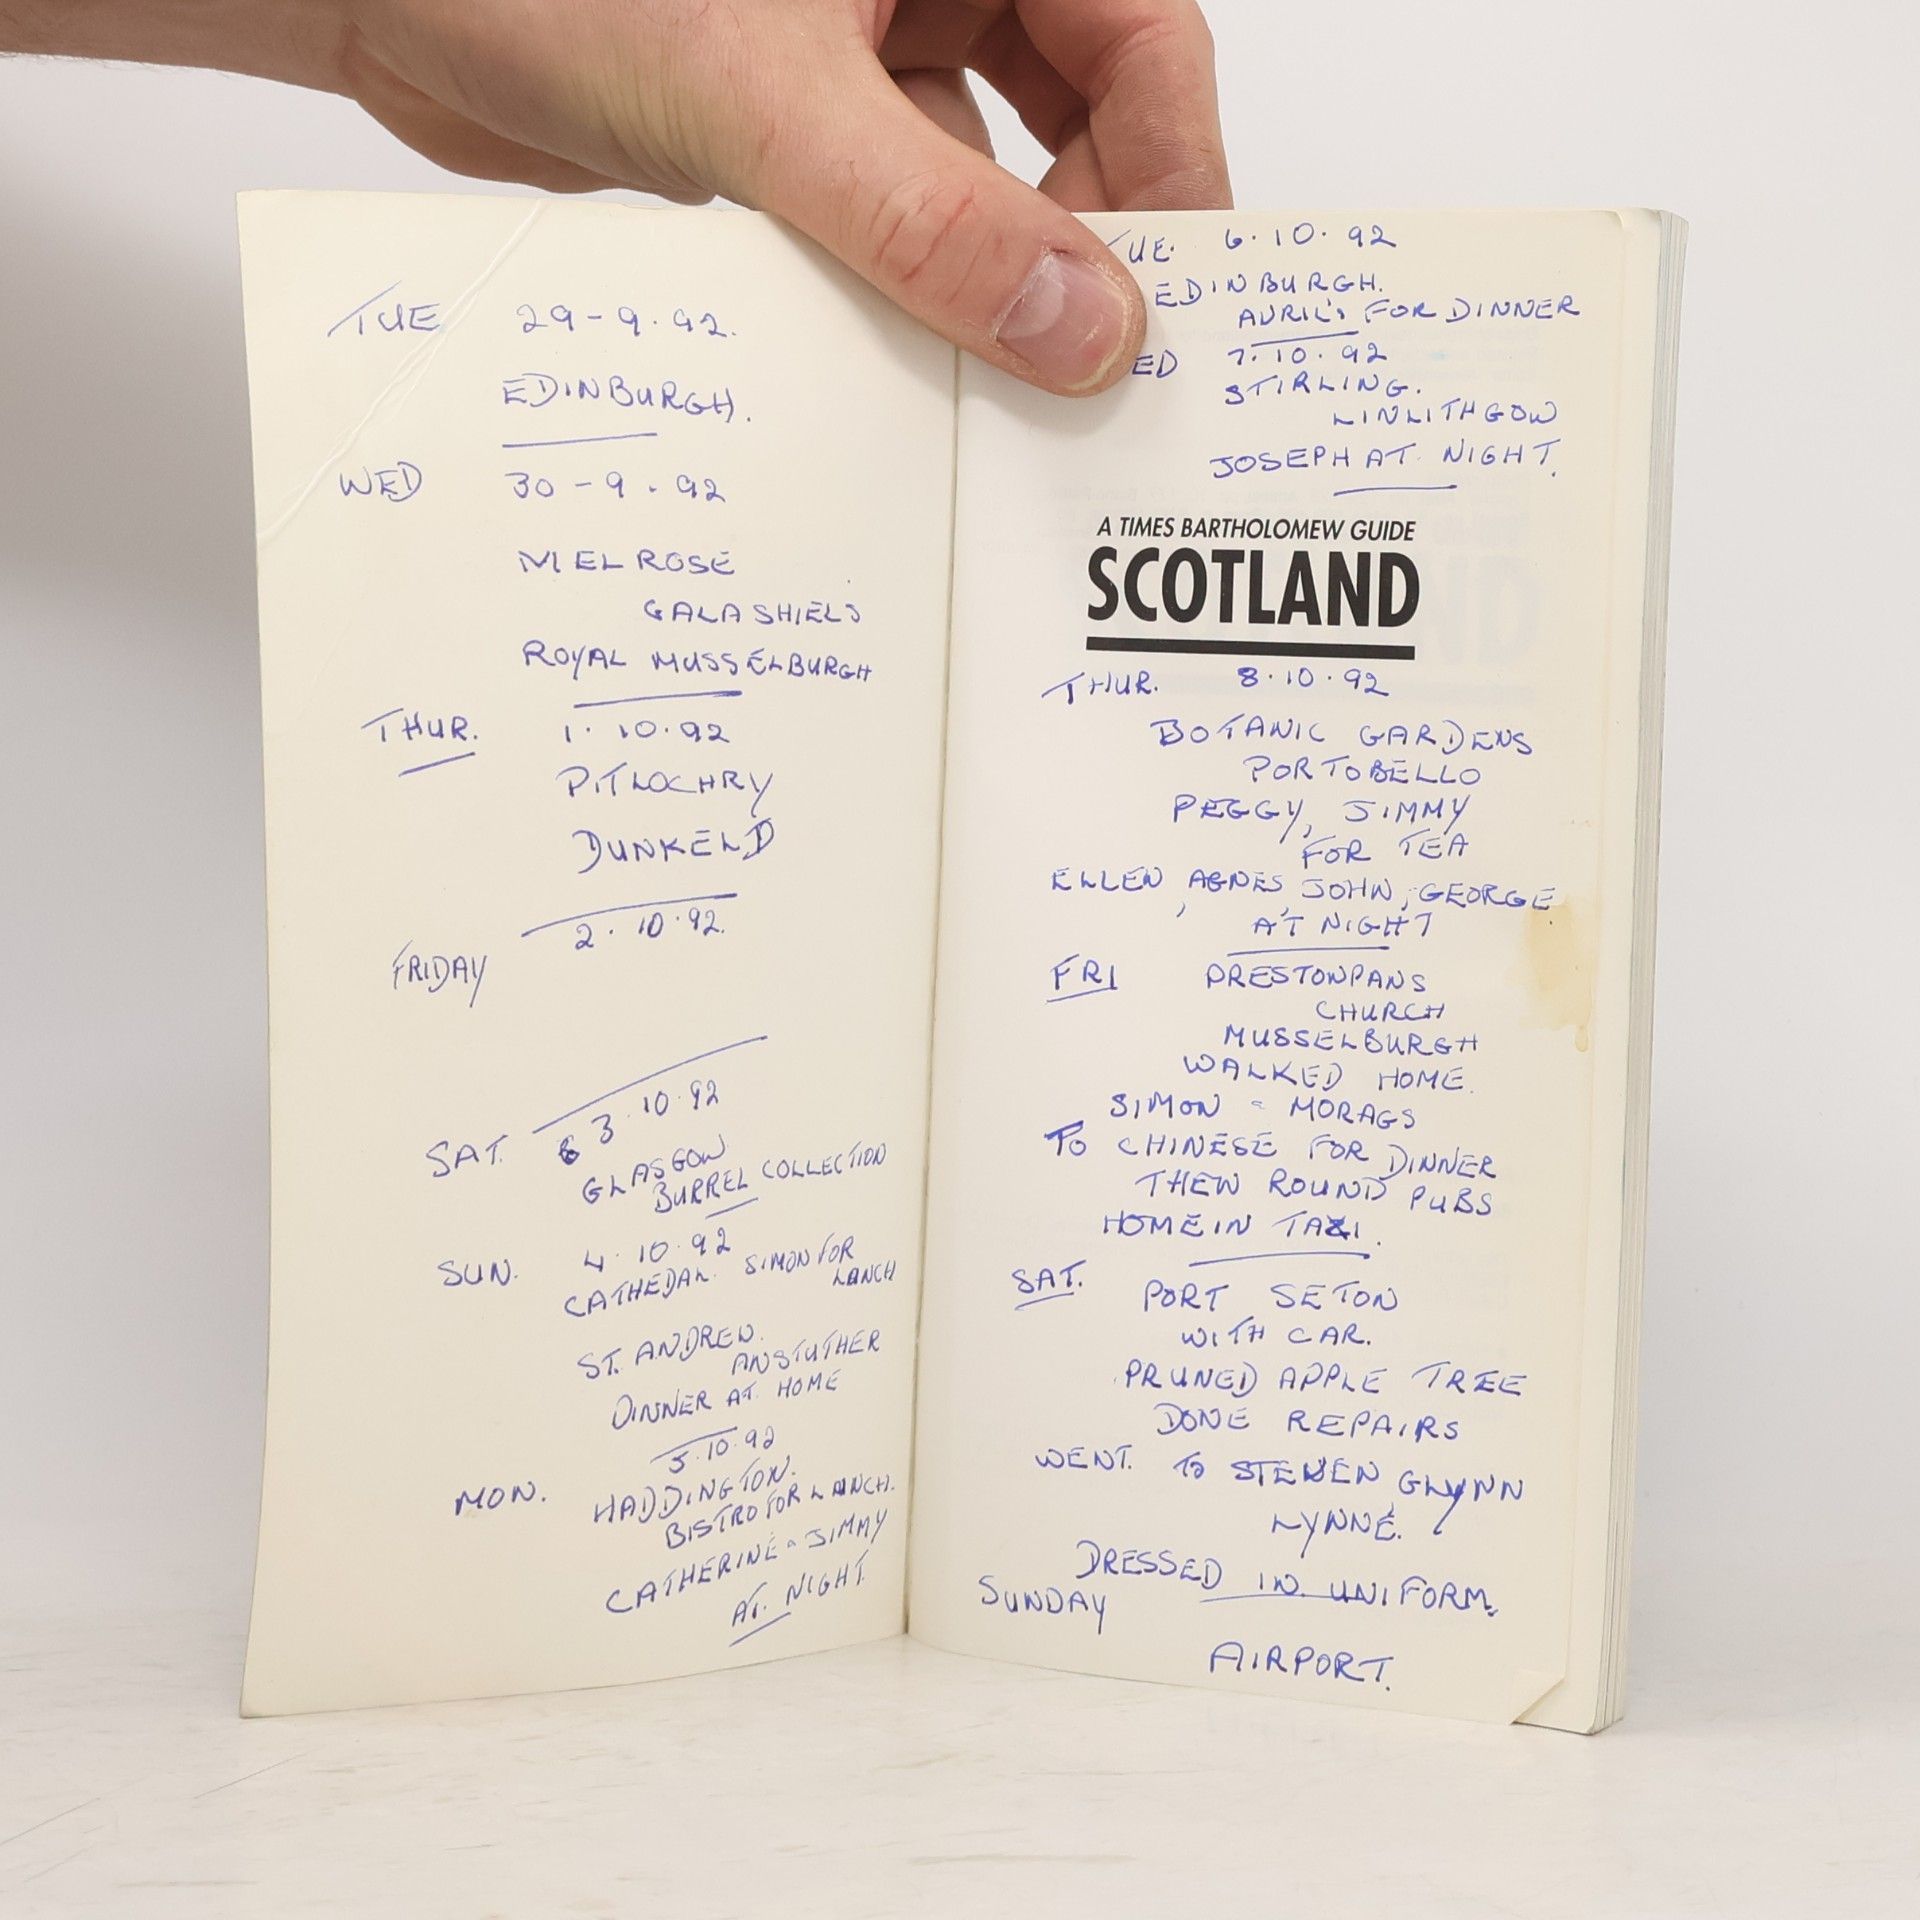 TUE 29-9.92.
EDINBURGH.
WED 30-9.92
MELROSE
GALASHIELS
ROYAL MUSSELBURGH
THUR. 1.10.92
PITLOCHRY
DUNKELD
2.10.92.
FRIDAY
SAT. 3.10.92
GLASGOW
BURREL COLLECTION
SUN. 4.10.92
CATHEDAL. SIMON FOR
LUNCH
ST. ANDREW.
ANSTUTHER
DINNER AT. HOME
5.10.92
MON. HADDINGTON.
BISTRO FOR LUNCH.
CATHERINE & JIMMY
AT. NIGHT.
TUE. 6.10.92
EDINBURGH.
AVRIL'S FOR DINNER
ED 7.10.92
STIRLING.
LINLITHGOW
JOSEPH AT. NIGHT.
A TIMES BARTHOLOMEW GUIDE
SCOTLAND
THUR. 8.10.92
BOTANIC GARDENS
PORTOBELLO
PEGGY, JIMMY
FOR TEA
ELLEN, AGNES, JOHN, GEORGE.
AT NIGHT
FRI PRESTONPANS
CHURCH
MUSSELBURGH
WALKED HOME.
SIMON & MORAGS
TO CHINESE FOR DINNER
THEN ROUND PUBS
HOME IN TAXI.
SAT. PORT SETON
WITH CAR.
PRUNED APPLE TREE
DONE REPAIRS
WENT. TO STEVEN, GLYNN
LYNNE.
DRESSED IN UNIFORM.
SUNDAY
AIRPORT.